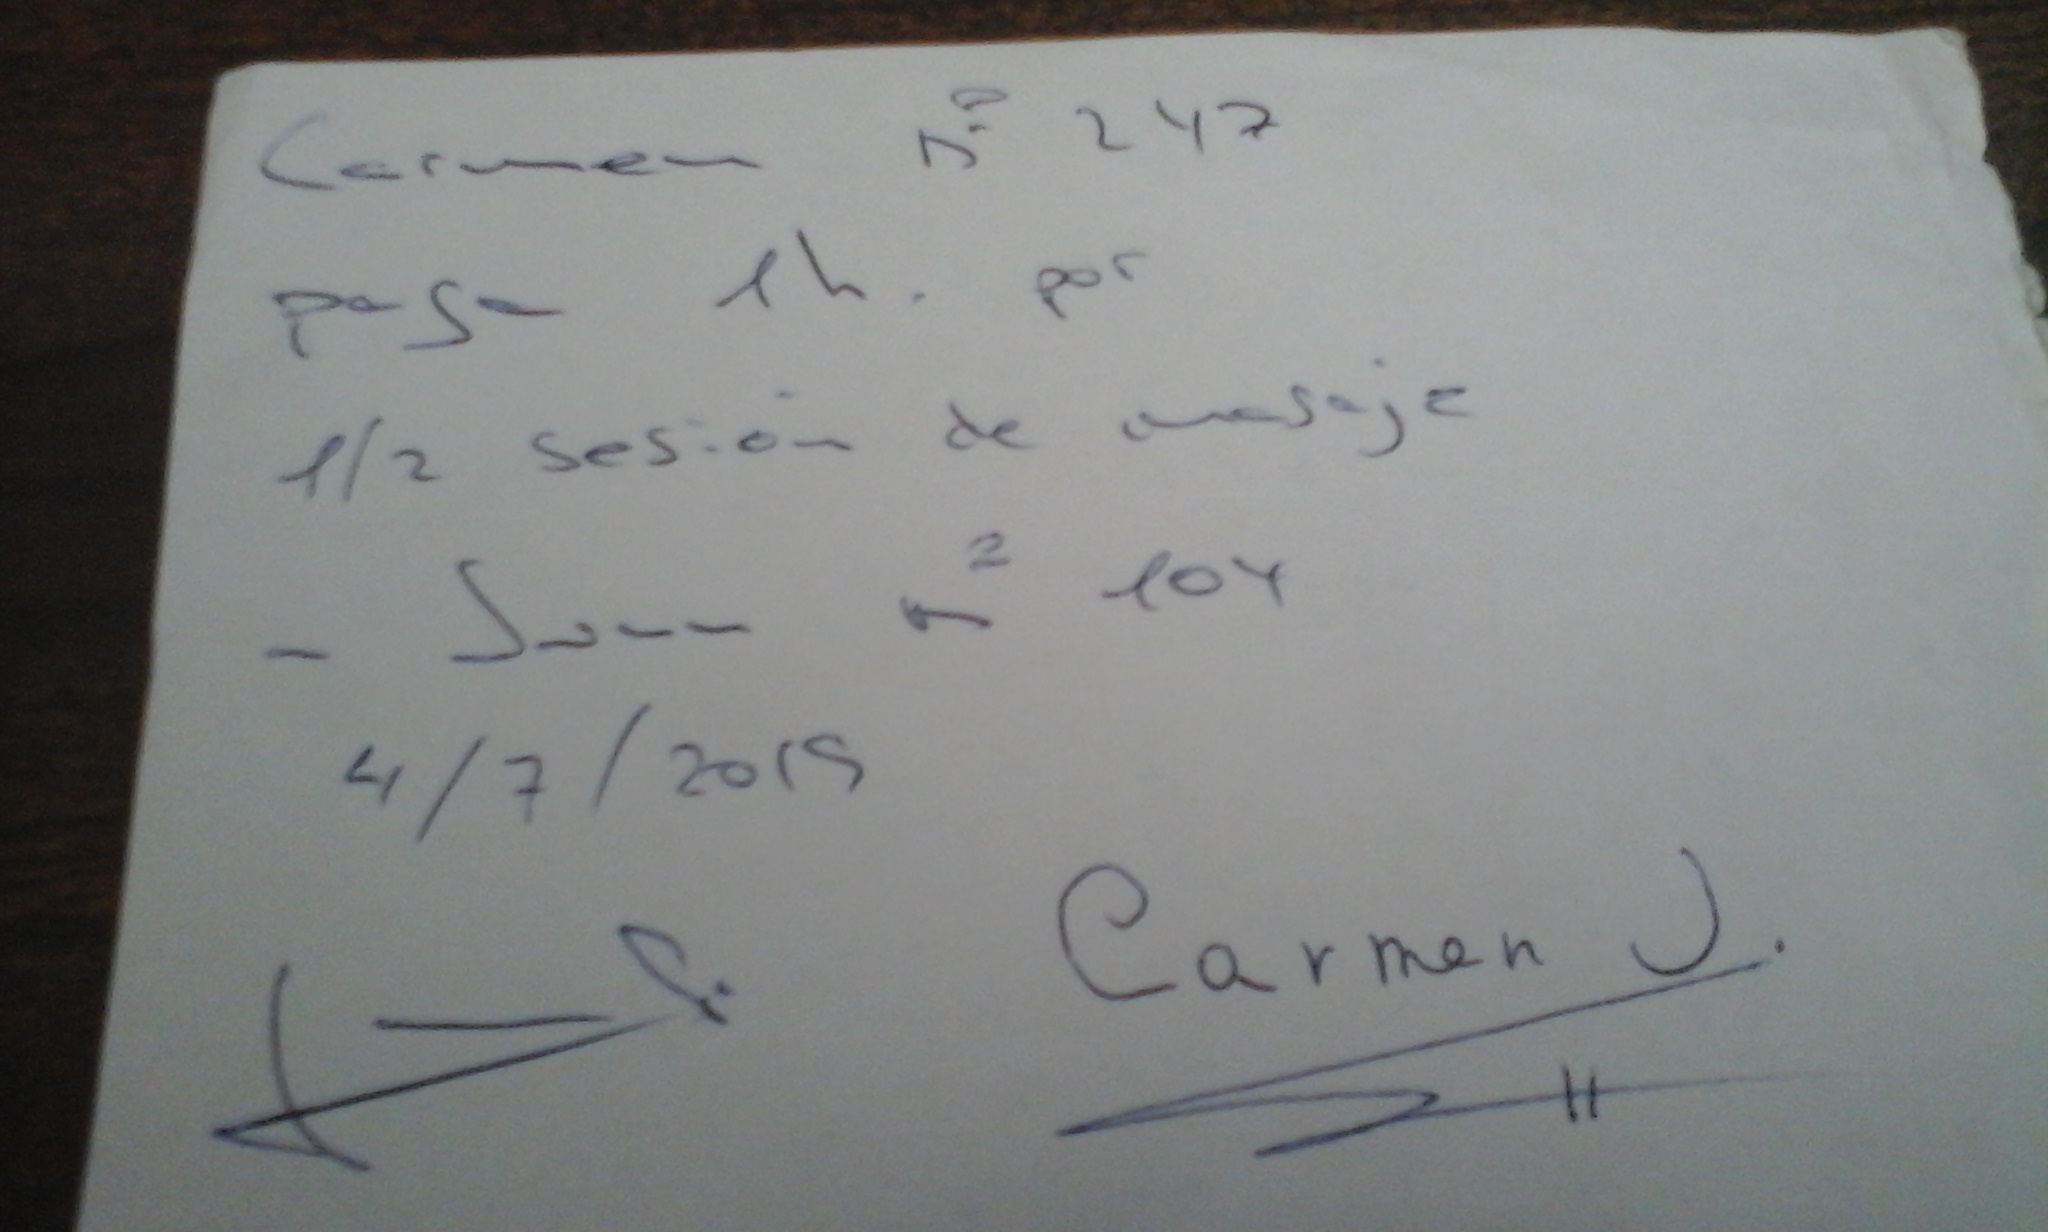 Carmen Nº 247
paga 1h. por
1/2 sesión de masaje
- Juan nº 104
4/7/2015
Carmen J.